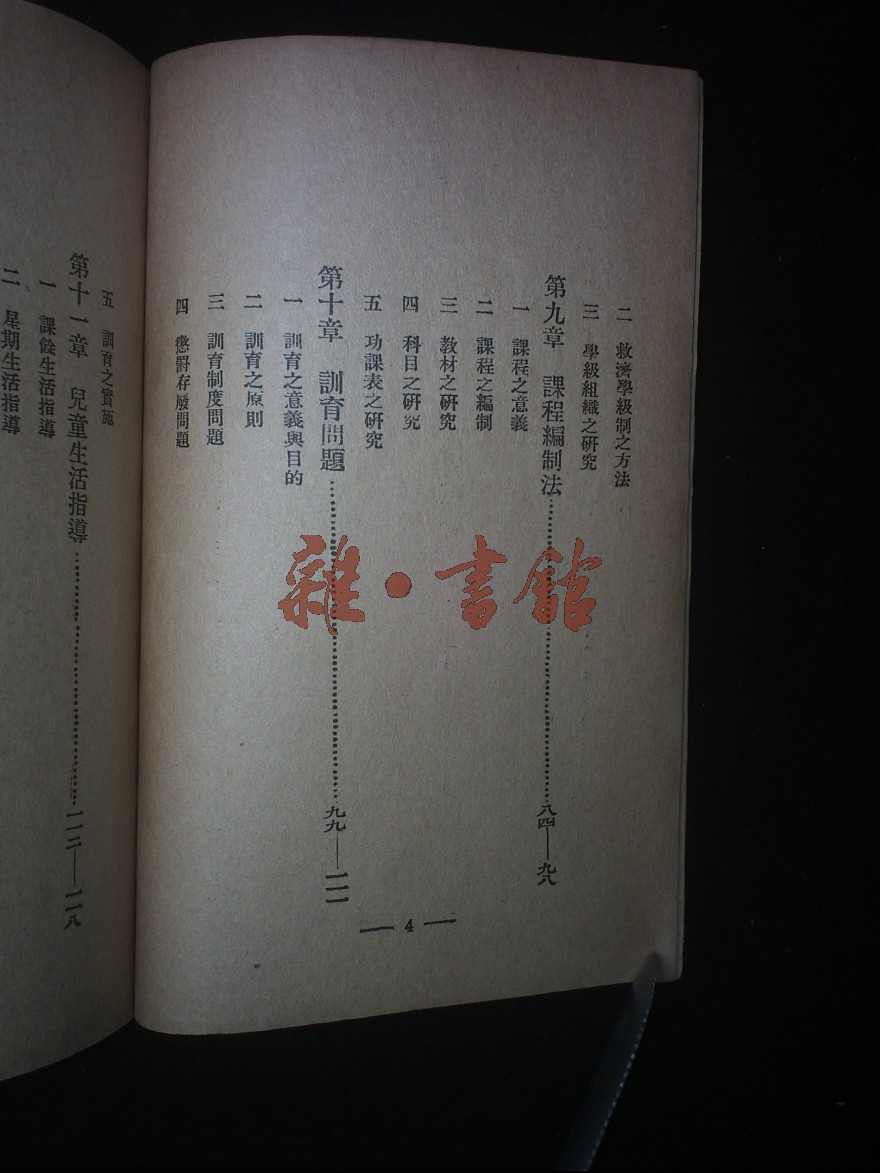 二　救濟學級制之方法
三　學級組織之研究
第九章　課程編制法……八四——九八
一　課程之意義
二　課程之編制
三　教材之研究
四　科目之研究
五　功課表之研究
第十章　訓育問題……九九——一一一
一　訓育之意義與目的
二　訓育之原則
三　訓育制度問題
四　懲罰存廢問題
— 4 —
五　訓育之實施
第十一章　兒童生活指導……一一二——一一八
一　課餘生活指導
二　星期生活指導
雜·書館